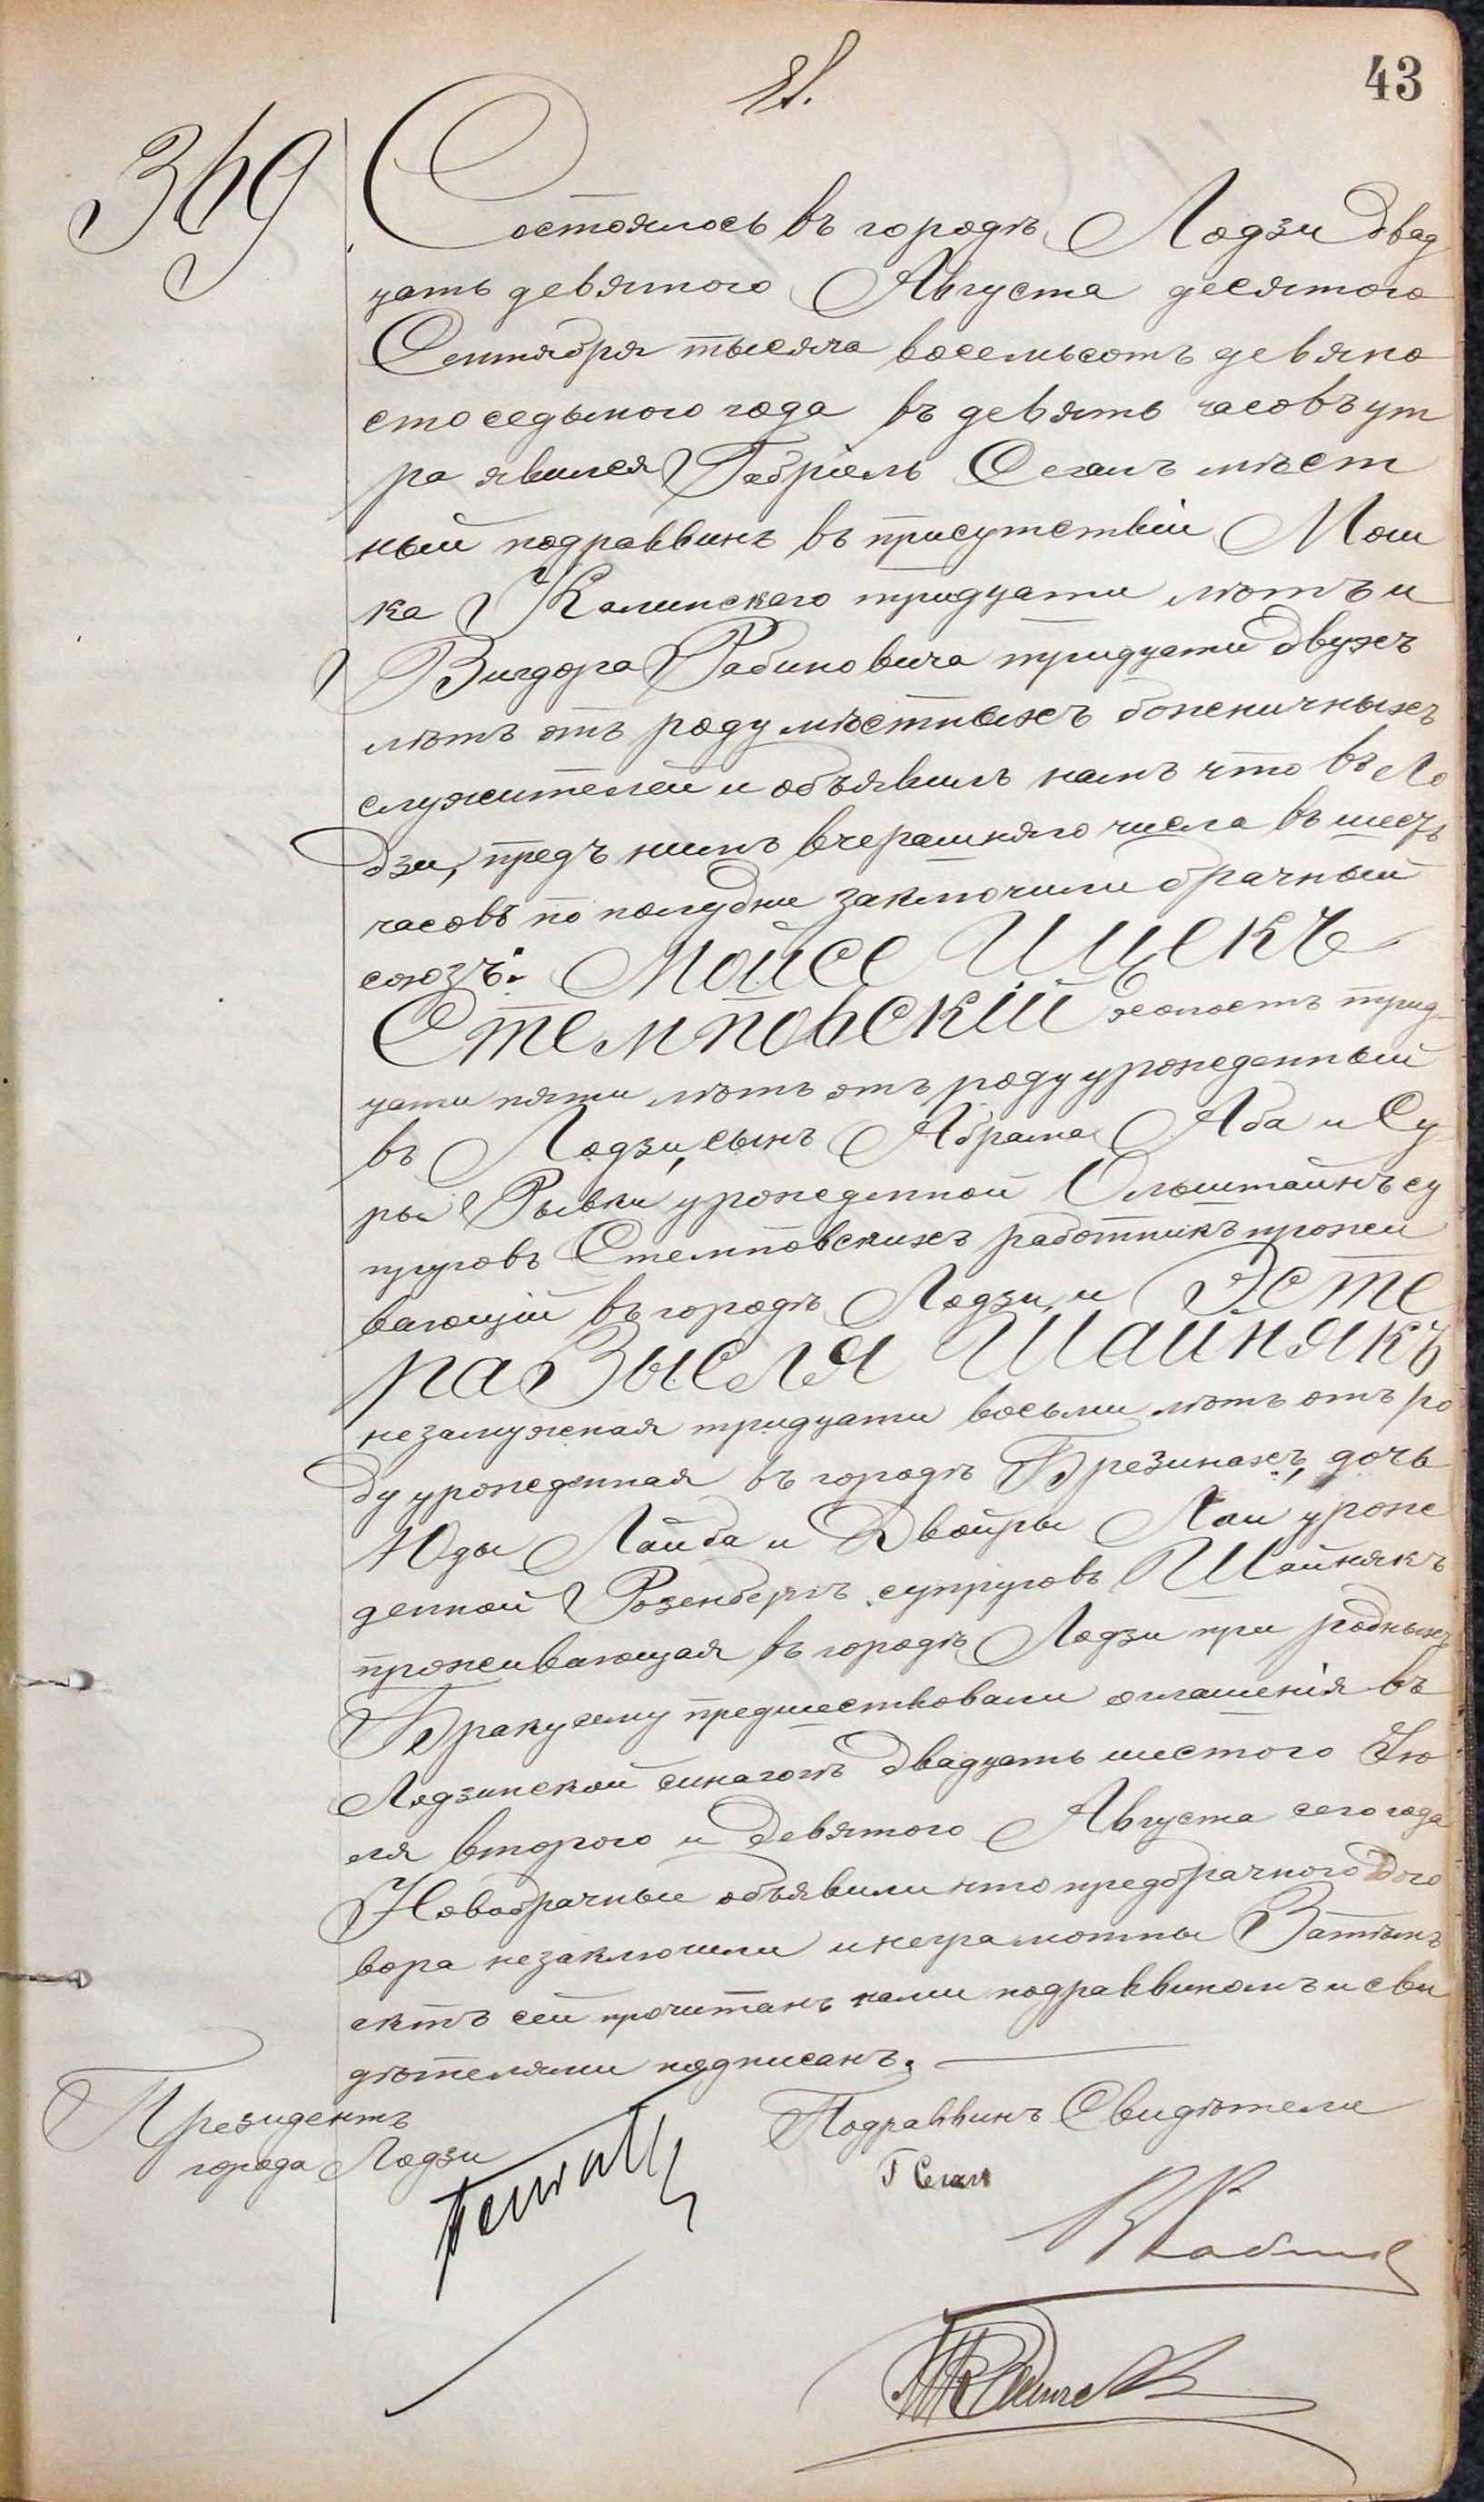 43
369
Состоялось въ городѣ Лодзи двад
цать девятого Августа десятого
Сентября тысяча восемьсотъ девяно
сто седьмого года въ девять часовъ ут
ра явился Габріель Сегалъ мѣст
ный подраввинъ въ присутствіи Мош
ка Калинскаго тридцати лѣтъ и
Вигдора Рабиновича тридцати двухъ
лѣтъ отъ роду мѣстныхъ боженичныхъ
служителей и объявилъ намъ что въ Ло
дзи, предъ нимъ вчерашняго числа въ шесть
часовъ по полудни заключили брачный
союзъ: Мойсе Ицекъ
Стемповскій холостъ трид
цати пяти лѣтъ отъ роду урожденный
въ Лодзи, сынъ Абрама Аба и Су
ры Рывки урожденной Ольштайнъ су
пруговъ Стемповскихъ работникъ прожи
вающій въ городѣ Лодзи, и Эсте
ра Зысля Шайнякъ
незамужная тридцати восьми лѣтъ отъ ро
ду урожденная въ городѣ Брезинахъ, дочь
Юды Лайба и Двойры Лаи уроже
денной Розенбергъ супруговъ Шайнякъ
проживающая въ городѣ Лодзи при родныхъ
Браку сему предшествовали оглашенія въ
Лодзинской синагогѣ двадцать шестого Ію
ля второго и девятого Августа сего года
Новобрачные объявили что предбрачного дого
вора незаключили и неграмотны Затѣмъ
актъ сей прочитанъ нами подраввиномъ и сви
дѣтелями подписанъ.
Президентъ
города Лодзи
Подраввинъ Свидѣтели
Г Сегал